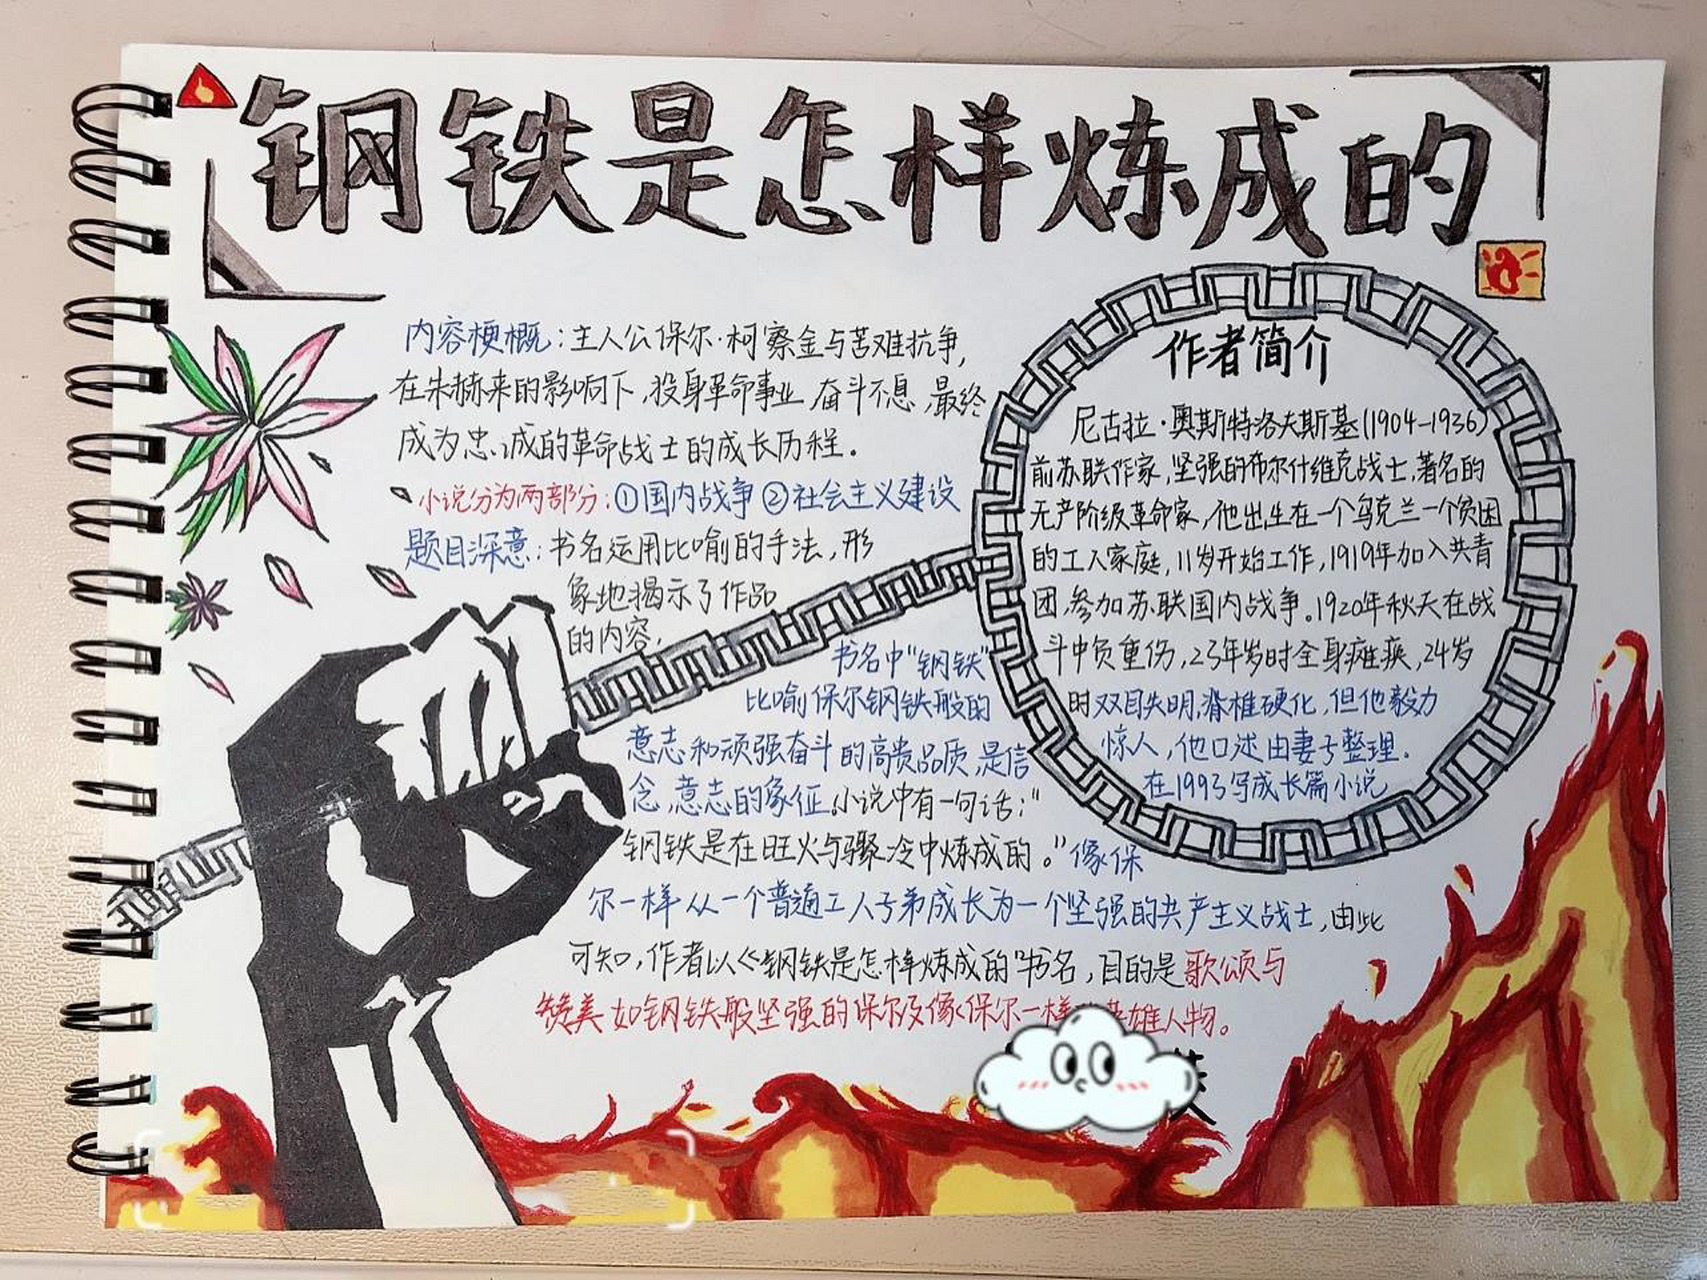 钢铁是怎样炼成的
内容梗概：主人公保尔·柯察金与苦难抗争，
在朱赫来的影响下，投身革命事业，奋斗不息，最终
成为忠诚的革命战士的成长历程。
小说分为两部分：①国内战争②社会主义建设
题目深意：书名运用比喻的手法，形
象地揭示了作品
的内容，
书名中“钢铁”
比喻保尔钢铁般的
意志和顽强奋斗的高贵品质，是信
念，意志的象征。小说中有一句话：“
钢铁是在旺火与骤冷中炼成的。”像保
尔一样从一个普通工人子弟成长为一个坚强的共产主义战士，由此
可知，作者以《钢铁是怎样炼成的》书名，目的是歌颂与
赞美如钢铁般坚强的保尔及像保尔一样 英雄人物。
作者简介
尼古拉·奥斯特洛夫斯基（1904—1936）
前苏联作家，坚强的布尔什维克战士，著名的
无产阶级革命家，他出生在一个乌克兰一个贫困
的工人家庭，11岁开始工作，1919年加入共青
团，参加苏联国内战争。1920年秋天在战
斗中负重伤，23年岁时全身瘫痪，24岁
时双目失明，脊椎硬化，但他毅力
惊人，他口述由妻子整理.
在1993写成长篇小说